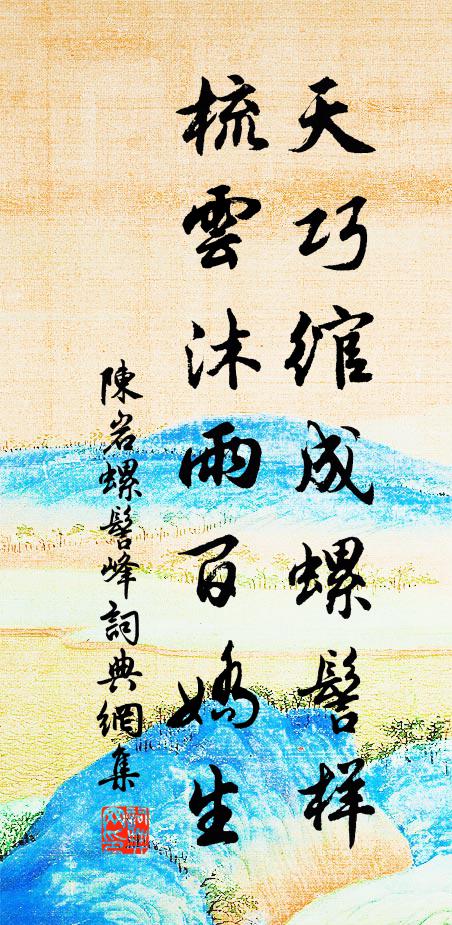 天巧綰成螺髻样
梳雲沐雨百嬌生
陳岩螺髻峰詞典網集